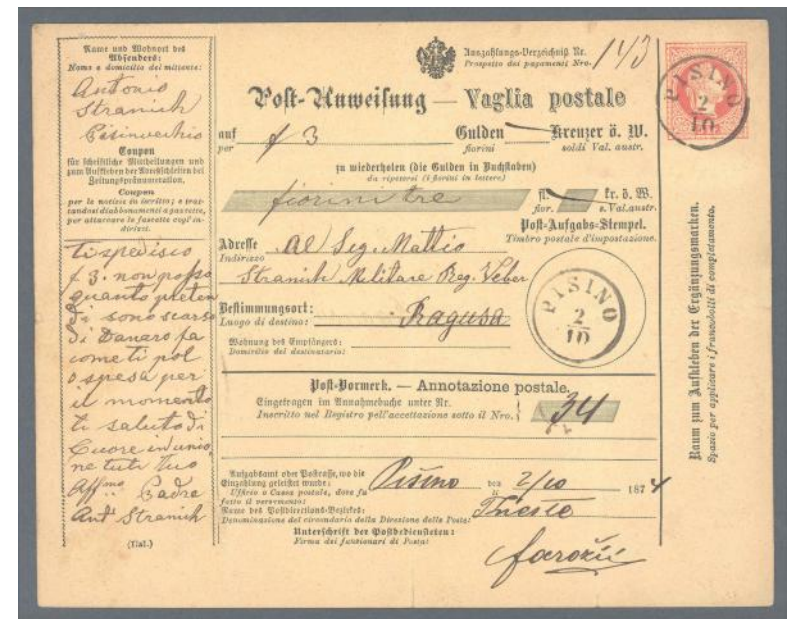 Name und Wohnort des
Absenders:
Nome e domicilio del mittente:
Antonio
Stranich
Pisinvechio
Coupon
für schriftliche Mittheilungen und
zum Aufkleben der Adreßschleifen bei
Zeitungspränumeration.
Coupon
per le notizie in iscritto; e trat-
tandosi di abbonamenti a gazzette,
per attaccare le fascette cogl'in-
dirizzi.
Ti spedisco
f 3. non posso
quanto preten
di sono scarso
di Danaro fa
come ti pol
o spesa per
il momento
ti saluto di
Cuore in unio
ne tuti tuo
Affmo Padre
Ant Stranich
(Ital.)
Auszahlungs-Verzeichniß Nr.
Prospetto dei pagamenti Nro.
143
Post-Anweisung — Vaglia postale
auf f 3 Gulden Kreuzer ö. W.
per fiorini soldi Val. austr.
zu wiederholen (die Gulden in Buchstaben)
da ripetersi (i fiorini in lettere)
fiorini tre fl. kr. ö. W.
fior. s. Val. austr.
Post-Aufgabs-Stempel.
Timbro postale d'impostazione.
Adresse Al Sig. Mattio
Indirizzo
Stranich Militare Reg. Veber
Bestimmungsort:
Luogo di destino: Ragusa
Wohnung des Empfängers:
Domicilio del destinatario:
PISINO
2
10
Post-Vormerk. — Annotazione postale.
Eingetragen im Annahmebuche unter Nr.
Inscritto nel Registro pell'accettazione sotto il Nro.
34
Aufgabsamt oder Postkasse, wo die
Einzahlung geleistet wurde:
Ufficio o Cassa postale, dove fu
fatto il versamento:
Pisino den 2/10 1874
li
Name des Postdirections-Bezirkes:
Denominazione del circondario della Direzione delle Poste:
Trieste
Unterschrift der Postbediensteten:
Firma dei funzionari di Posta:
PISINO
2
10
Raum zum Aufkleben der Ergänzungsmarken.
Spazio per applicare i francobolli di completamento.